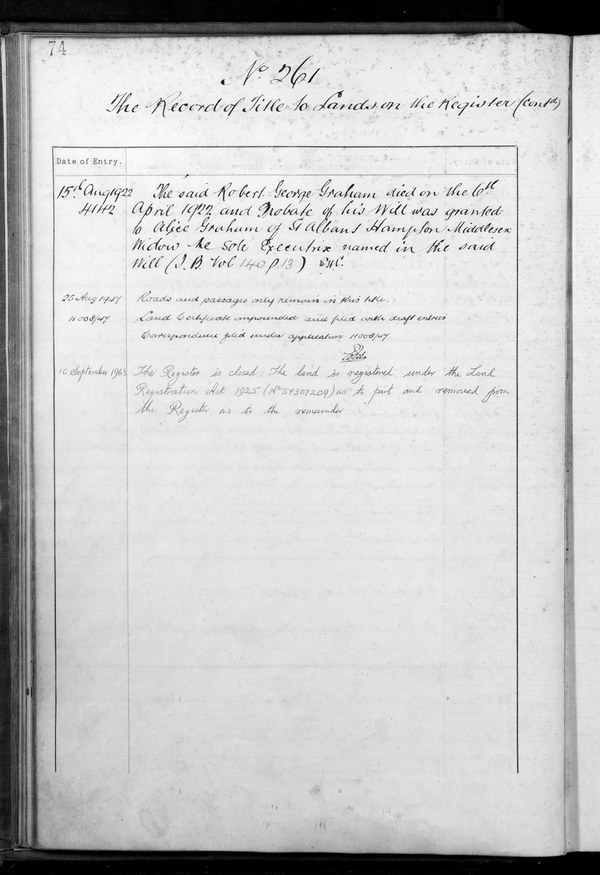 74
No 261
The Record of Title to Lands on the Register (contd)
Date of Entry.
15th Aug 1922 The said Robert George Graham died on the 6th
4142 April 1922 and Probate of his Will was granted
to Alice Graham of St Albans Hampton Middlesex
Widow the sole Executrix named in the said
Will (I.B. Vol 140 p. 13)
25 Aug 1947 Roads and passages only remain in this title.
11008/47 Land Certificate impounded and filed with draft entries
Correspondence filed under application 11008/47
10 September 1963 The Register is closed. The land is registered under the Land
Registration Act 1925 (No SY307209) as to part and removed from
the Register as to the remainder